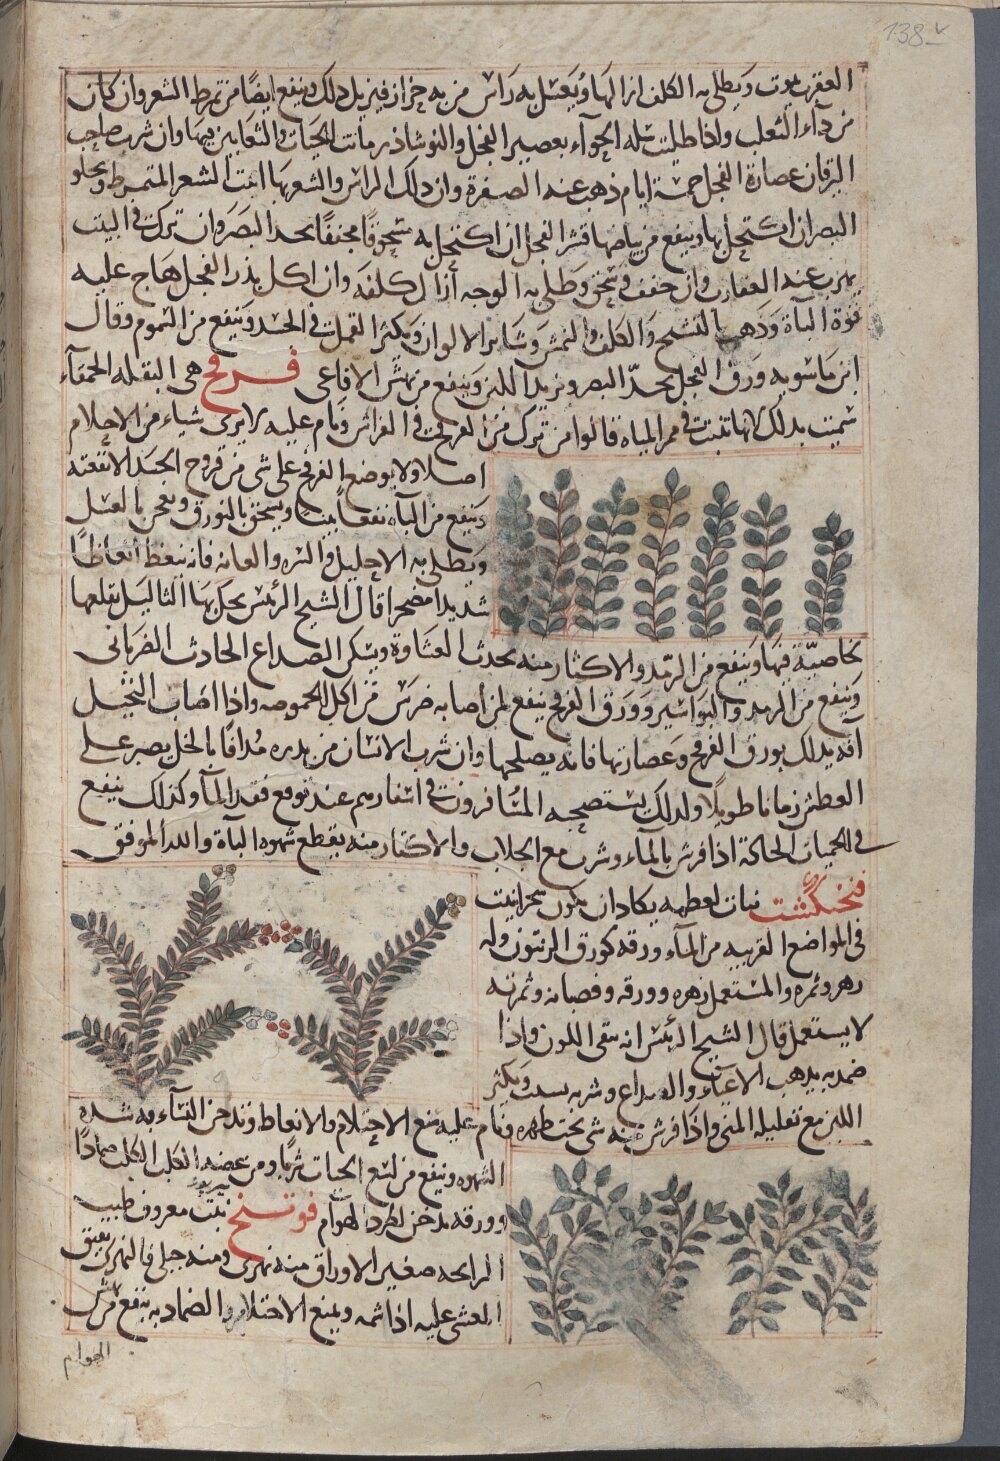 138v
العقرب يموت ويطلى به الكلف ازالها ويغسل به راس من به حزاز فيزيل ذلك وينفع ايضا من تمرط الشعر وان كان
من داء الثعلب واذا طليت سله الحواء بعصير الفجل والنوشاذر ماتت الحيات والثعابين فيها وان شرب صاحب
اليرقان عصارة الفجل خمسة ايام ذهب عنه الصفرة وان دلك الراس والشعر بها انبت الشعر المتمرط ويجلو
البصر ان اكتحل بها وينفع من بياضها قشر الفجل ان اكتحل به مسحوقا مجففا يحد البصر وان ترك في البيت
يهرب عنه العقارب وان جفف وطلى به الوجه ازال كلفه وان اكل بذر الفجل هاج عليه
قوة الباة وذهب بالتشيح والكلف والنمش وسائر الالوان ويكثر القمل في الجسد وينفع من السموم وقال
ابن ماسويه ورق الفجل يحد البصر ويزيد اللبن وينفع من نهش الافاعى فرفخ هى البقله الحمقاء
سميت بذلك لانها تنبت في ممر المياه قالوا من ترك من الفرفخ في الفراش ونام عليه لا يرى شياء من الاحلام
اصلا ولا يوضع الفرفخ على شى من قروح الجسد الا نفعته
وينفع من الباه نفعا بينا ويسحق بالبورق ويعجن بالعسل
ويطلى به الاحليل والسره والعانه فانه ينعظ انعاظا
شديدا مضجرا قال الشيخ الرئيس يحك بها الثاليل يقلعها
بخاصية فيها وينفع من الرمد والاكثار منه يحدث الغشاوة ويسكن الصداع الحادث الضربانى
وينفع من الرمد والبواسير وورق الفرفخ ينفع لمن اصابه ضرس من اكل الحموضه واذا اصاب النخيل
آفه يدلك بورق الفرفخ وعصارتها فانه يصلحها وان شرب الانسان من بذره مدافا بالخل يصبر على
العطش زمانا طويلا ولذلك يستصحبه المسافرون في اسفارهم عند توقع فقد الماء وكذلك ينفع
في الحميات الحادة اذا فرش بالماء وشرب مع الجلاب والاكثار منه يقطع شهوة الباة والله الموفق
فنجنگشت نبات لعظمه يكاد ان يكون شجرا نبت
في المواضع القريبه من الماء ورقه كورق الزيتون وله
زهر وثمره والمستعمل زهره وورقه وقضبانه وثمرته
لا يستعمل قال الشيخ الرئيس انه ينقى اللون واذا
ضمد به يذهب الاعياء والصداع وشربه يسبت ويكثر
اللبن مع تقليله المنى واذا فرش منه شى تحت ظهره
ونام عليه منع الاحتلام والانعاظ وتدخن النساء به شده
الشهوه وينفع من لسع الحيات شربا ومن عضه الكلب الكلب ضمادا
وورقه يدخن لطرد الهوام فوتنج نبت معروف طيب
الرايحه صغير الاوراق منه نهرى ومنه جبلى فالنهرى يفيق
المغشى عليه اذا شمه ويمنع الاحتلام والضماد به ينفع نهش
الهوام